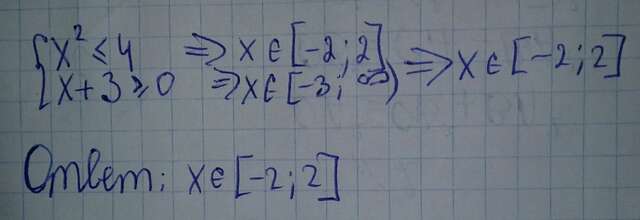 {x² ≤ 4 ⇒ x ∈ [-2; 2]
{x + 3 ≥ 0 ⇒ x ∈ [-3; ∞) ⇒ x ∈ [-2; 2]
Ответ: x ∈ [-2; 2]